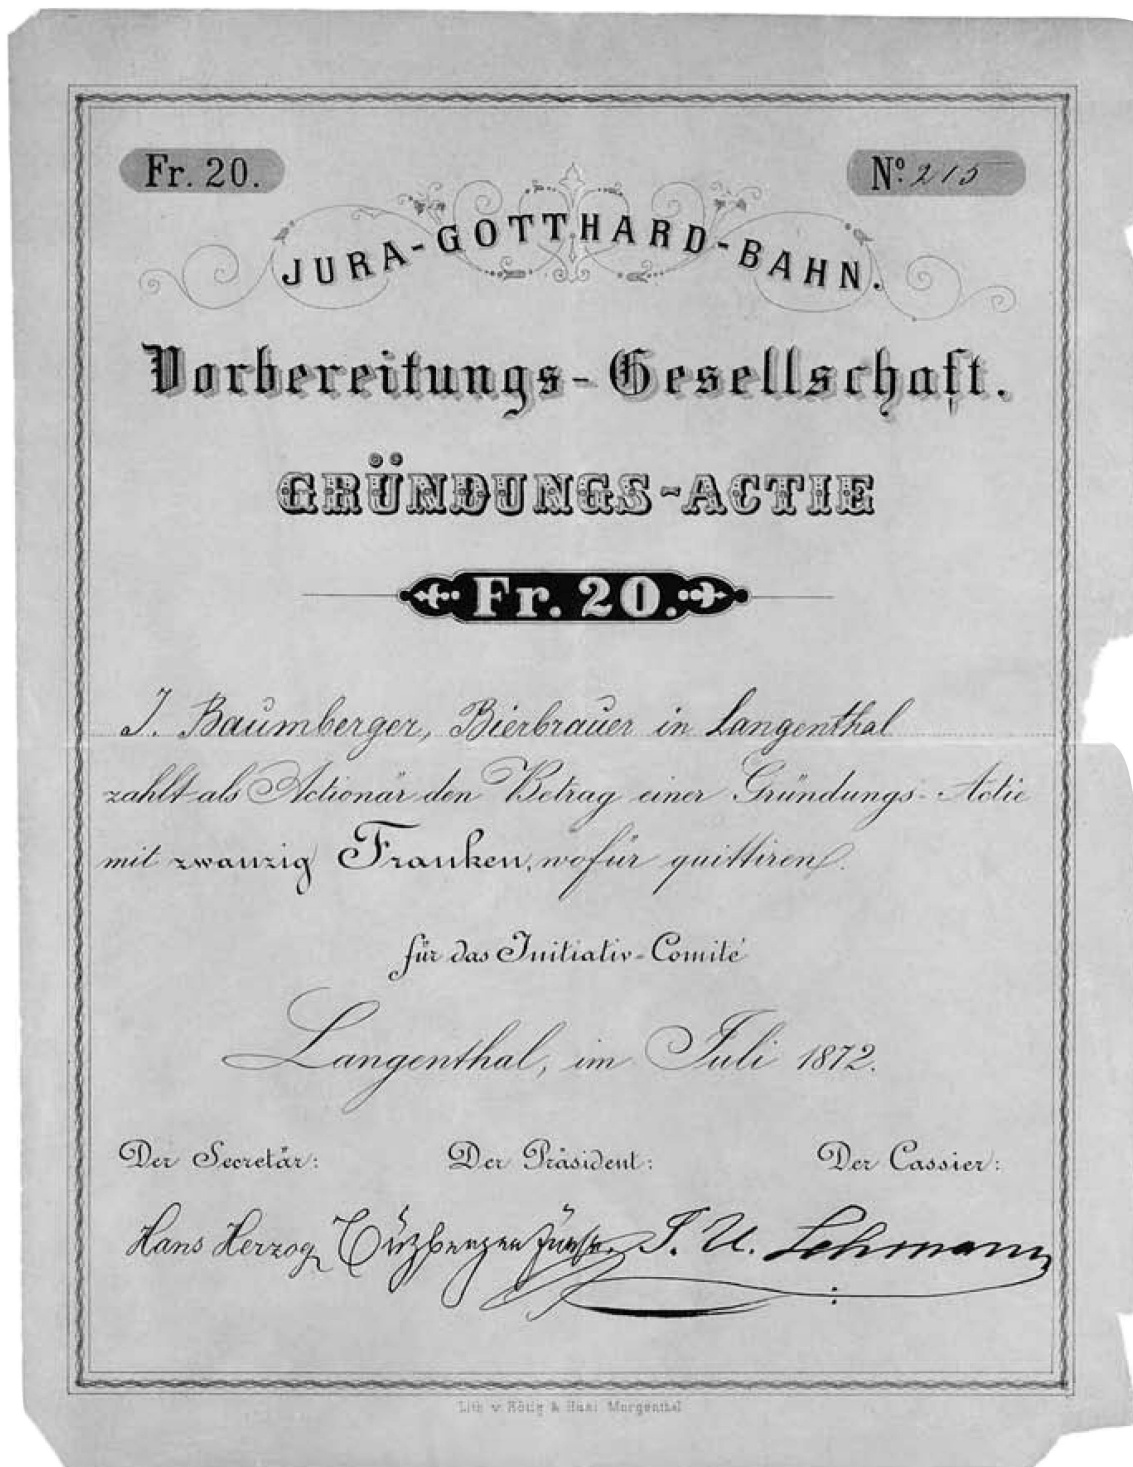 Fr. 20.
No. 215
JURA-GOTTHARD-BAHN.
Vorbereitungs-Gesellschaft.
GRÜNDUNGS-ACTIE
Fr. 20.
J. Baumberger, Bierbrauer in Langenthal
zahlt als Actionär den Betrag einer Gründungs-Actie
mit zwanzig Franken, wofür quittiren
für das Initiativ-Comité
Langenthal, im Juli 1872.
Der Secretär: Der Präsident: Der Cassier:
Hans Herzog J. U. Lehmann
Lith. v. & Morgenthal